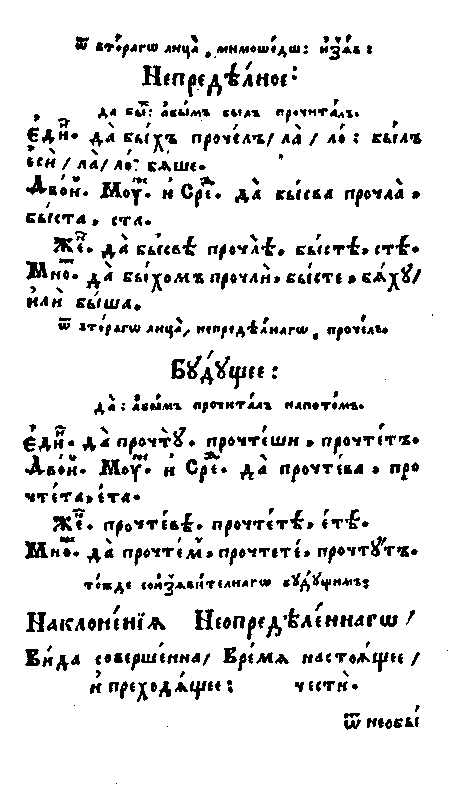 Ѿ вто́рагѡ лица̀, мимошє́дш: и҆з̾ѧ́в:
Непредѣ́лное:
да бы̑: а҆бы́мъ былъ прочита́лъ.
Е҆ди̑н. да̀ бы́хъ проче́лъ/ ла̀/ ло̀: бы́лъ
є҆сѝ/ ла̀/ ло̀: бѧ́ше.
Дво́й. Мꙋ́ж. и҆ Сре́д. да̀ бы́сва прочла̀,
бы́ста, ста.
Же́н. да̀ бы́свѣ прочлѣ̀. бы́стѣ, стѣ.
Мно́ж. да̀ бы́хомъ прочлѝ, бы́сте, бѧ́хꙋ/
и҆лѝ бы́ша.
Ѿ вто́рагѡ лица̀, непредѣ́лнагѡ, проче́лъ.
Бꙋ́дꙋщее:
да̀: а҆бы́мъ прочита́лъ напото́мъ.
Е҆ди̑н. да̀ прочтꙋ̀. прочте́ши, прочте́тъ.
Дво́й. Мꙋ́ж. и҆ Сре́д. да̀ прочте́ва, про
чте́та, е́та.
Же́н. прочте́вѣ. прочте́тѣ, е́тѣ.
Мно́ж. да̀ прочте́м̾, прочтете́, прочтꙋ́тъ.
то́жде со и҆з̾ѧви́телнагѡ бꙋ́дꙋщимъ:
Наклоне́нїѧ Неопредѣле́ннагѡ/
Ви́да соверше́нна/ Вре́мѧ настоѧ́щее/
и҆ преходѧ́щее: честѝ.
Ѿ необы́